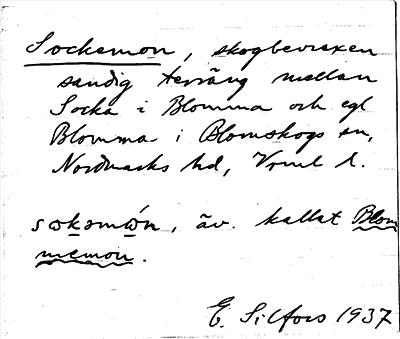 Sockemon, skogbevuxen
sandig terräng mellan
Socka i Blomma och egl
Blomma i Blomskogs sn,
Nordmarks hd, Vrml l.
sɷkəmɷ́n, äv. kallat Blom
memon.
E. Silfors 1937